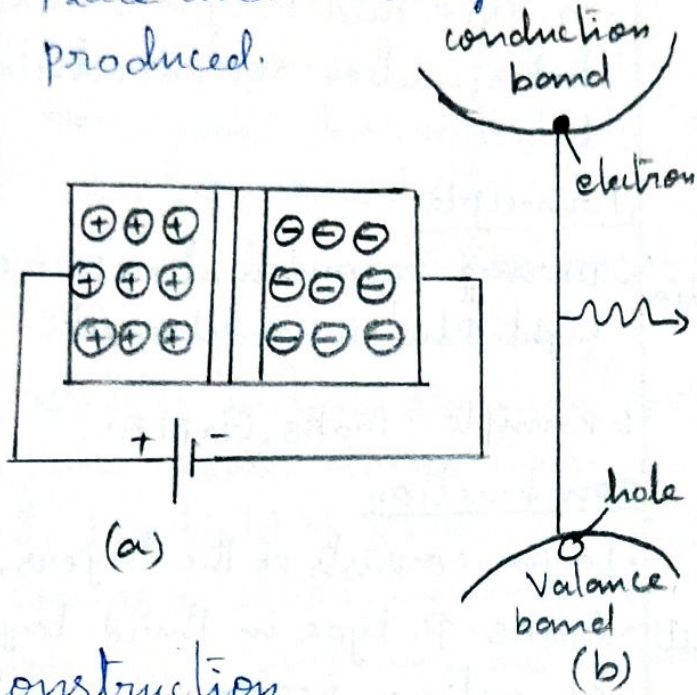 produced.
conduction
band
electron
⊕ ⊕ ⊕ ⊖ ⊖ ⊖
⊕ ⊕ ⊕ ⊖ ⊖ ⊖
⊕ ⊕ ⊕ ⊖ ⊖ ⊖
+ -
(a)
hole
Valance
band
(b)
onstruction